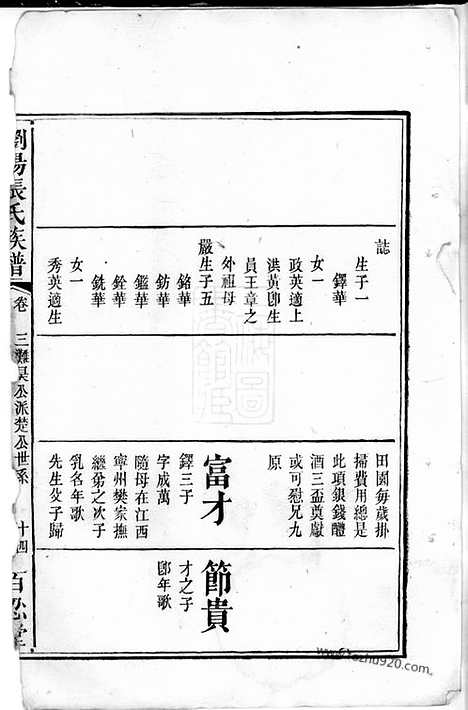 誌
生子一
鐸華
女一
政英適上
洪黃卽生
員王章之
外祖母
嚴生子五
銘華
鈁華
鑑華
銓華
銑華
女一
秀英適生
田園每歲掛
掃費用總是
此項銀錢醴
酒三盃奠獻
或可慰兄九
原
富才
鐸三子
字成萬
隨母在江西
寧州樊家撫
繼弟之次子
乳名年歌
先生父子歸
節貴
才之子
卽年歌
瀏陽張氏族譜
卷
三灘昊公派楚公世系
十四
百忍堂